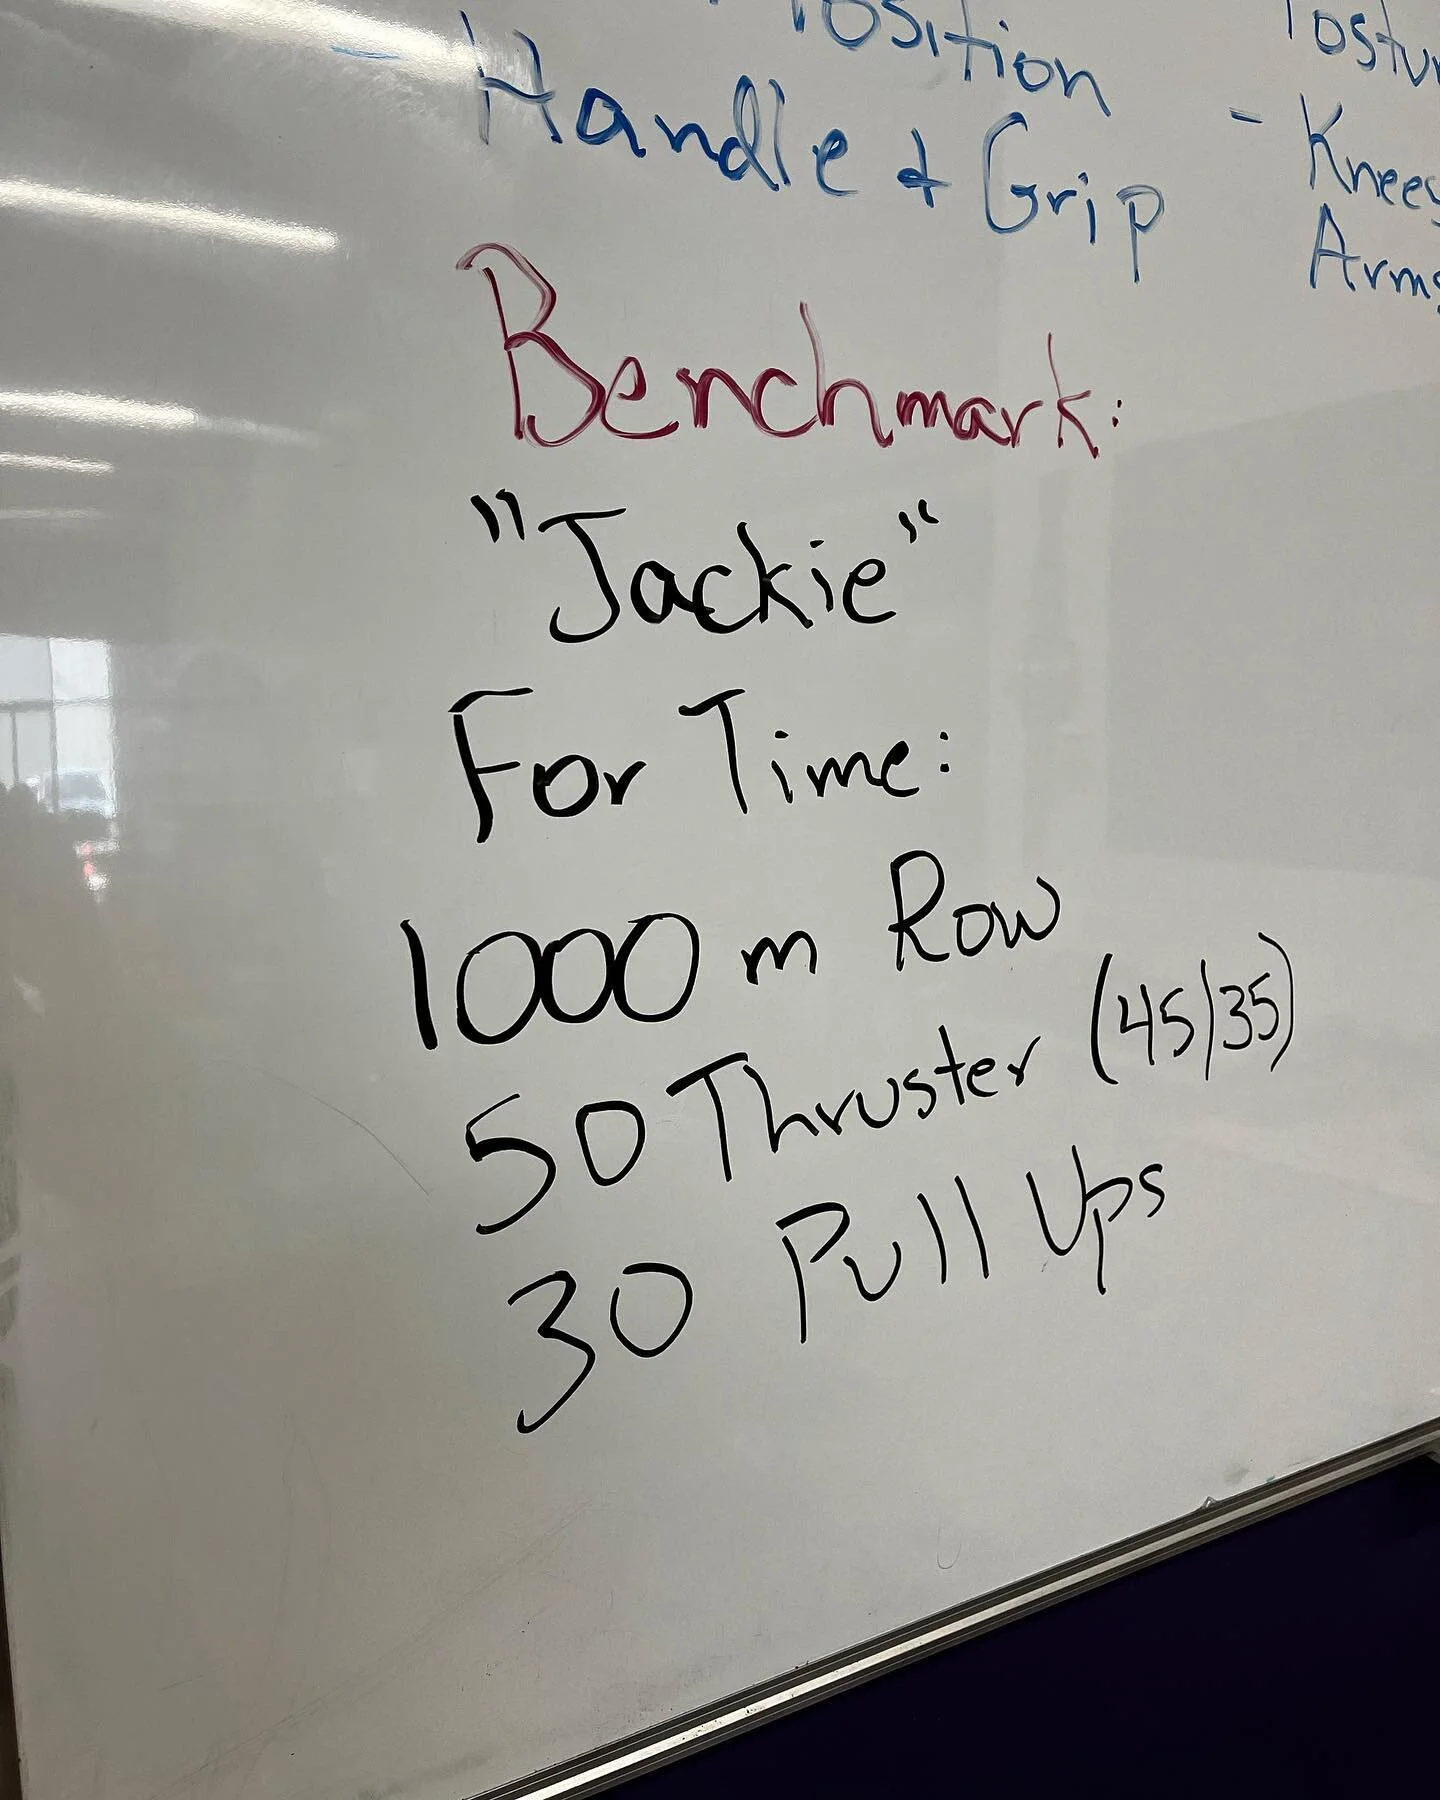 Position
- Handle + Grip
- Knees
Arms
Benchmark:
"Jackie"
For Time:
1000 m Row
50 Thruster (45/35)
30 Pull Ups